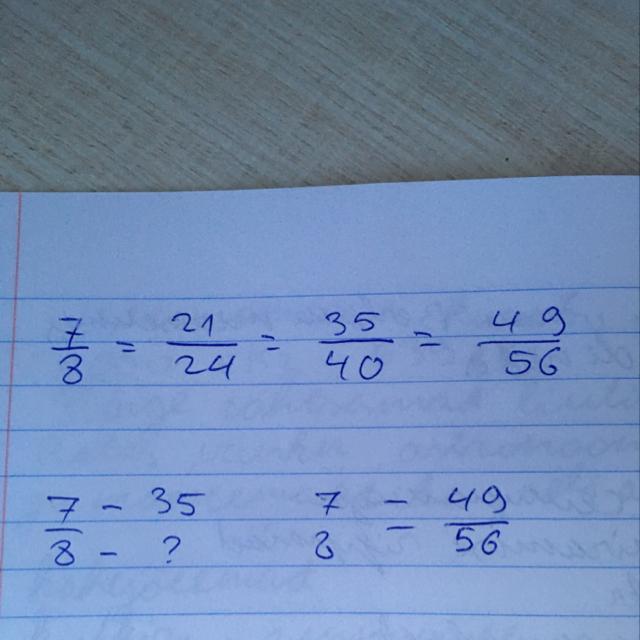 7/8 = 21/24 = 35/40 = 49/56
7/8 - 35 - ? 7 8 = 49/56